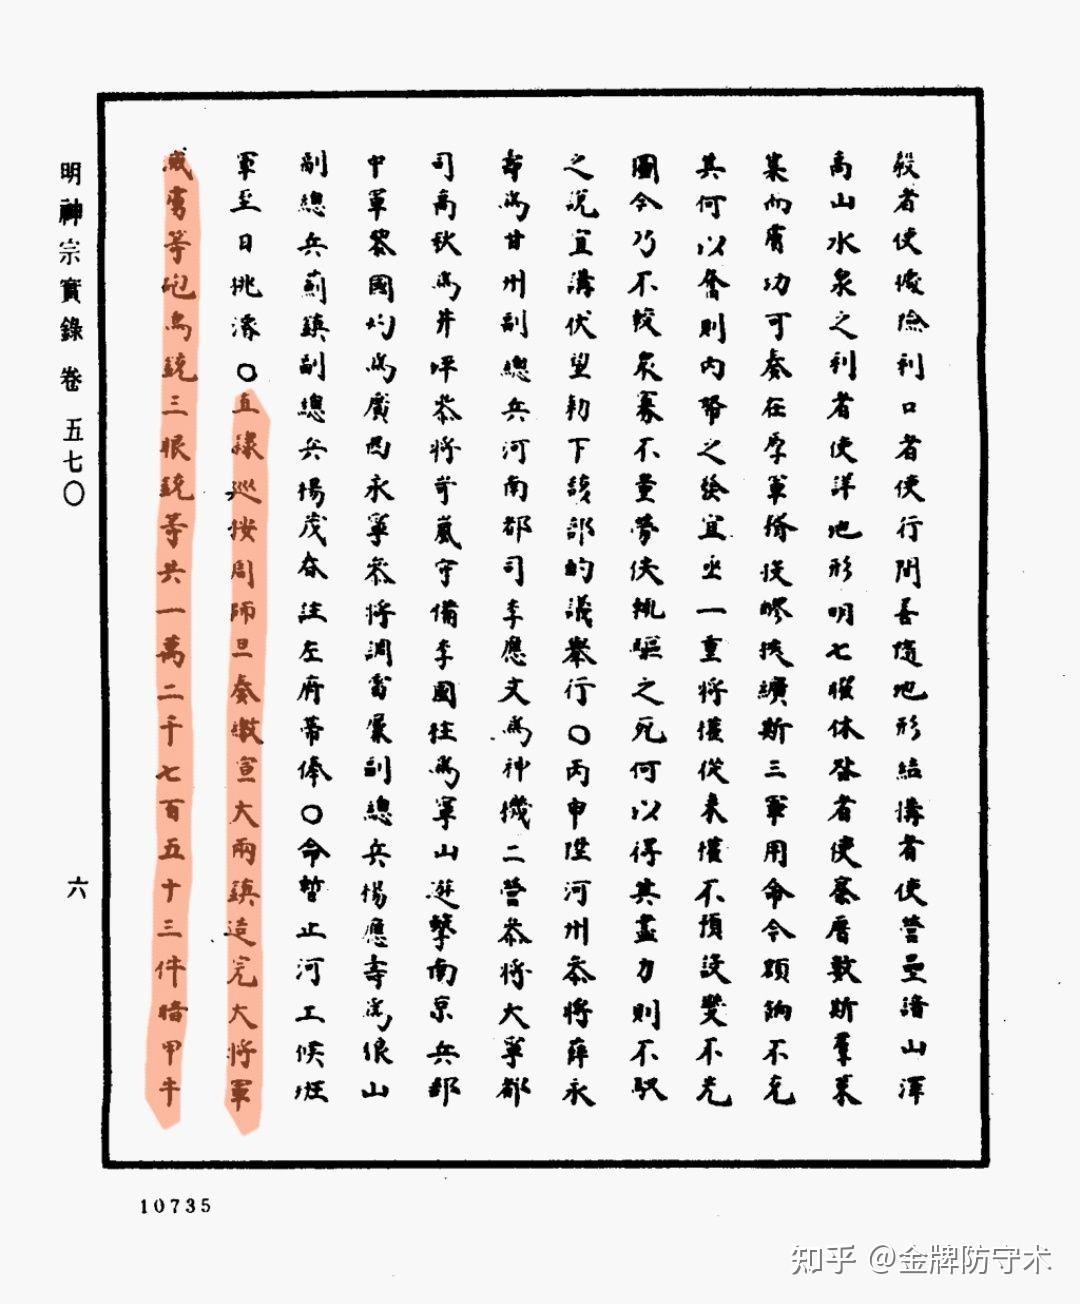 殺者使攖險利口者使行間善隨地形結搆者使營壘諳山澤
高山水泉之利者使詳地形明七曜休咎者使察曆數斯羣策
集而膚功可奏在厚軍擠挾醪挾纊斯三軍用命今額餉不充
其何以奮則內帑之發宜亟一重將權從來權不預設變不先
圖今乃不較眾寡不量勞佚執驅之死何以得其盡力則不馭
之說宜講伏望勅下該部酌議舉行〇丙申陞河州叅將薛永
壽為甘州副總兵河南都司李應文為神機二營叅將大寧都
司高秋為井坪叅將岢嵐守備李國柱為寧山遊擊南京兵部
中軍黎國灼為廣西永寧叅將調甯夏副總兵楊應壽為狼山
副總兵薊鎮副總兵楊茂春註左府帶俸〇命暫止河工候班
軍至日挑濬〇直隸巡按周師旦奏繳宣大兩鎮造完大將軍
滅虜等砲鳥銃三眼銃等共一萬二千七百五十三件暗甲牛
明神宗實錄卷五七〇
六
10735
知乎 @金牌防守术